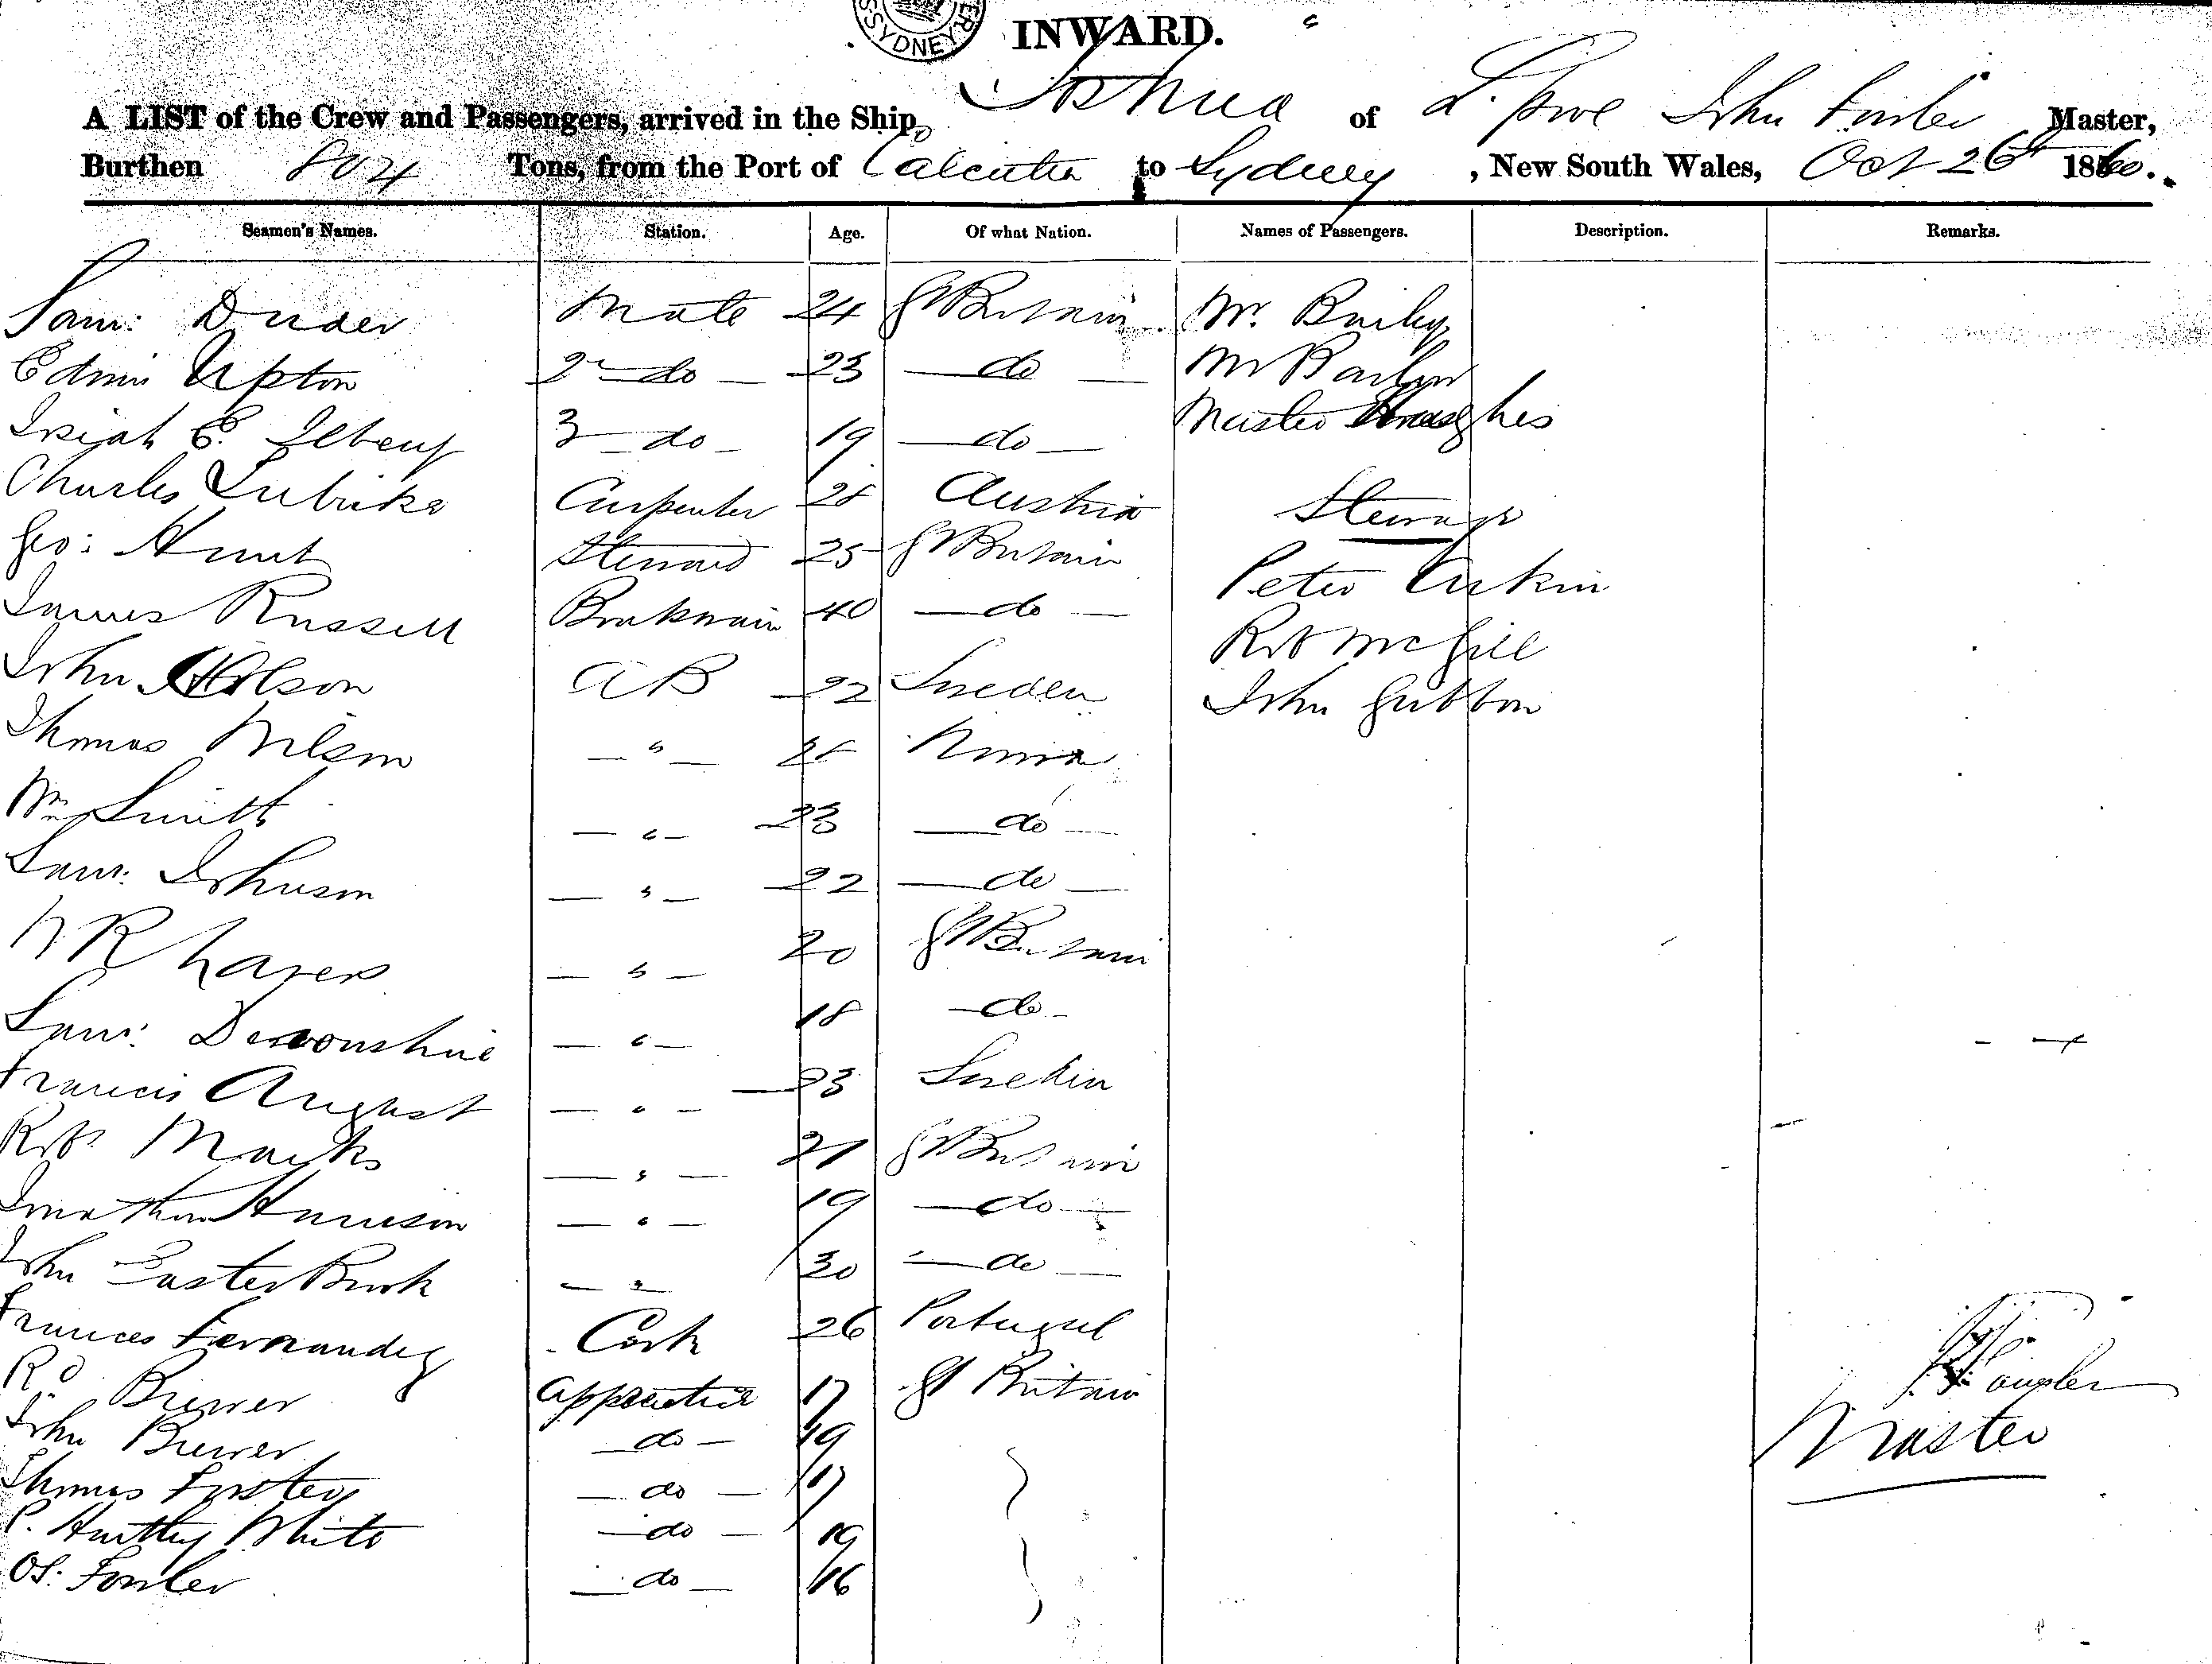 SYDNEY
INWARD.
A LIST of the Crew and Passengers, arrived in the Ship Joshua of L.pool John Fowler Master,
Burthen 804 Tons, from the Port of Calcutta to Sydney, New South Wales, Oct 26th 1860.
Seamen's Names. Station. Age. Of what Nation. Names of Passengers. Description. Remarks.
Sam: Duder Mate 24 Gt Britain Mr. Baily
Edwin Upton 2nd do 23 do
3 do 19 do Master Hughes
Charles Carpenter 28 Austria Steerage
Geo: Hunt Steward 25 Gt Britain Peter
James Russell Boatswain 40 do Robt McGill
John Olson AB 22 Sweden John Gibbon
Thomas Wilson " do
Wm Smith " 23 do
Saml: Johnson " 22 do
W R " 20 Gt Britain
Saml: Devonshire " 18 do
Francis August " 23 Sweden
Robt Marks " 21 Gt Britain
Jonathan Harrison " 19 do
John Easterbrook " 30 do
Frances Fernandez Cook 26 Portugal
Rd Brewer Apprentice 17 Gt Britain
John Brewer do 19
Thomas Foster do 17
P. Hartley White do 19
Fowler do 16
J. Fowler
Master